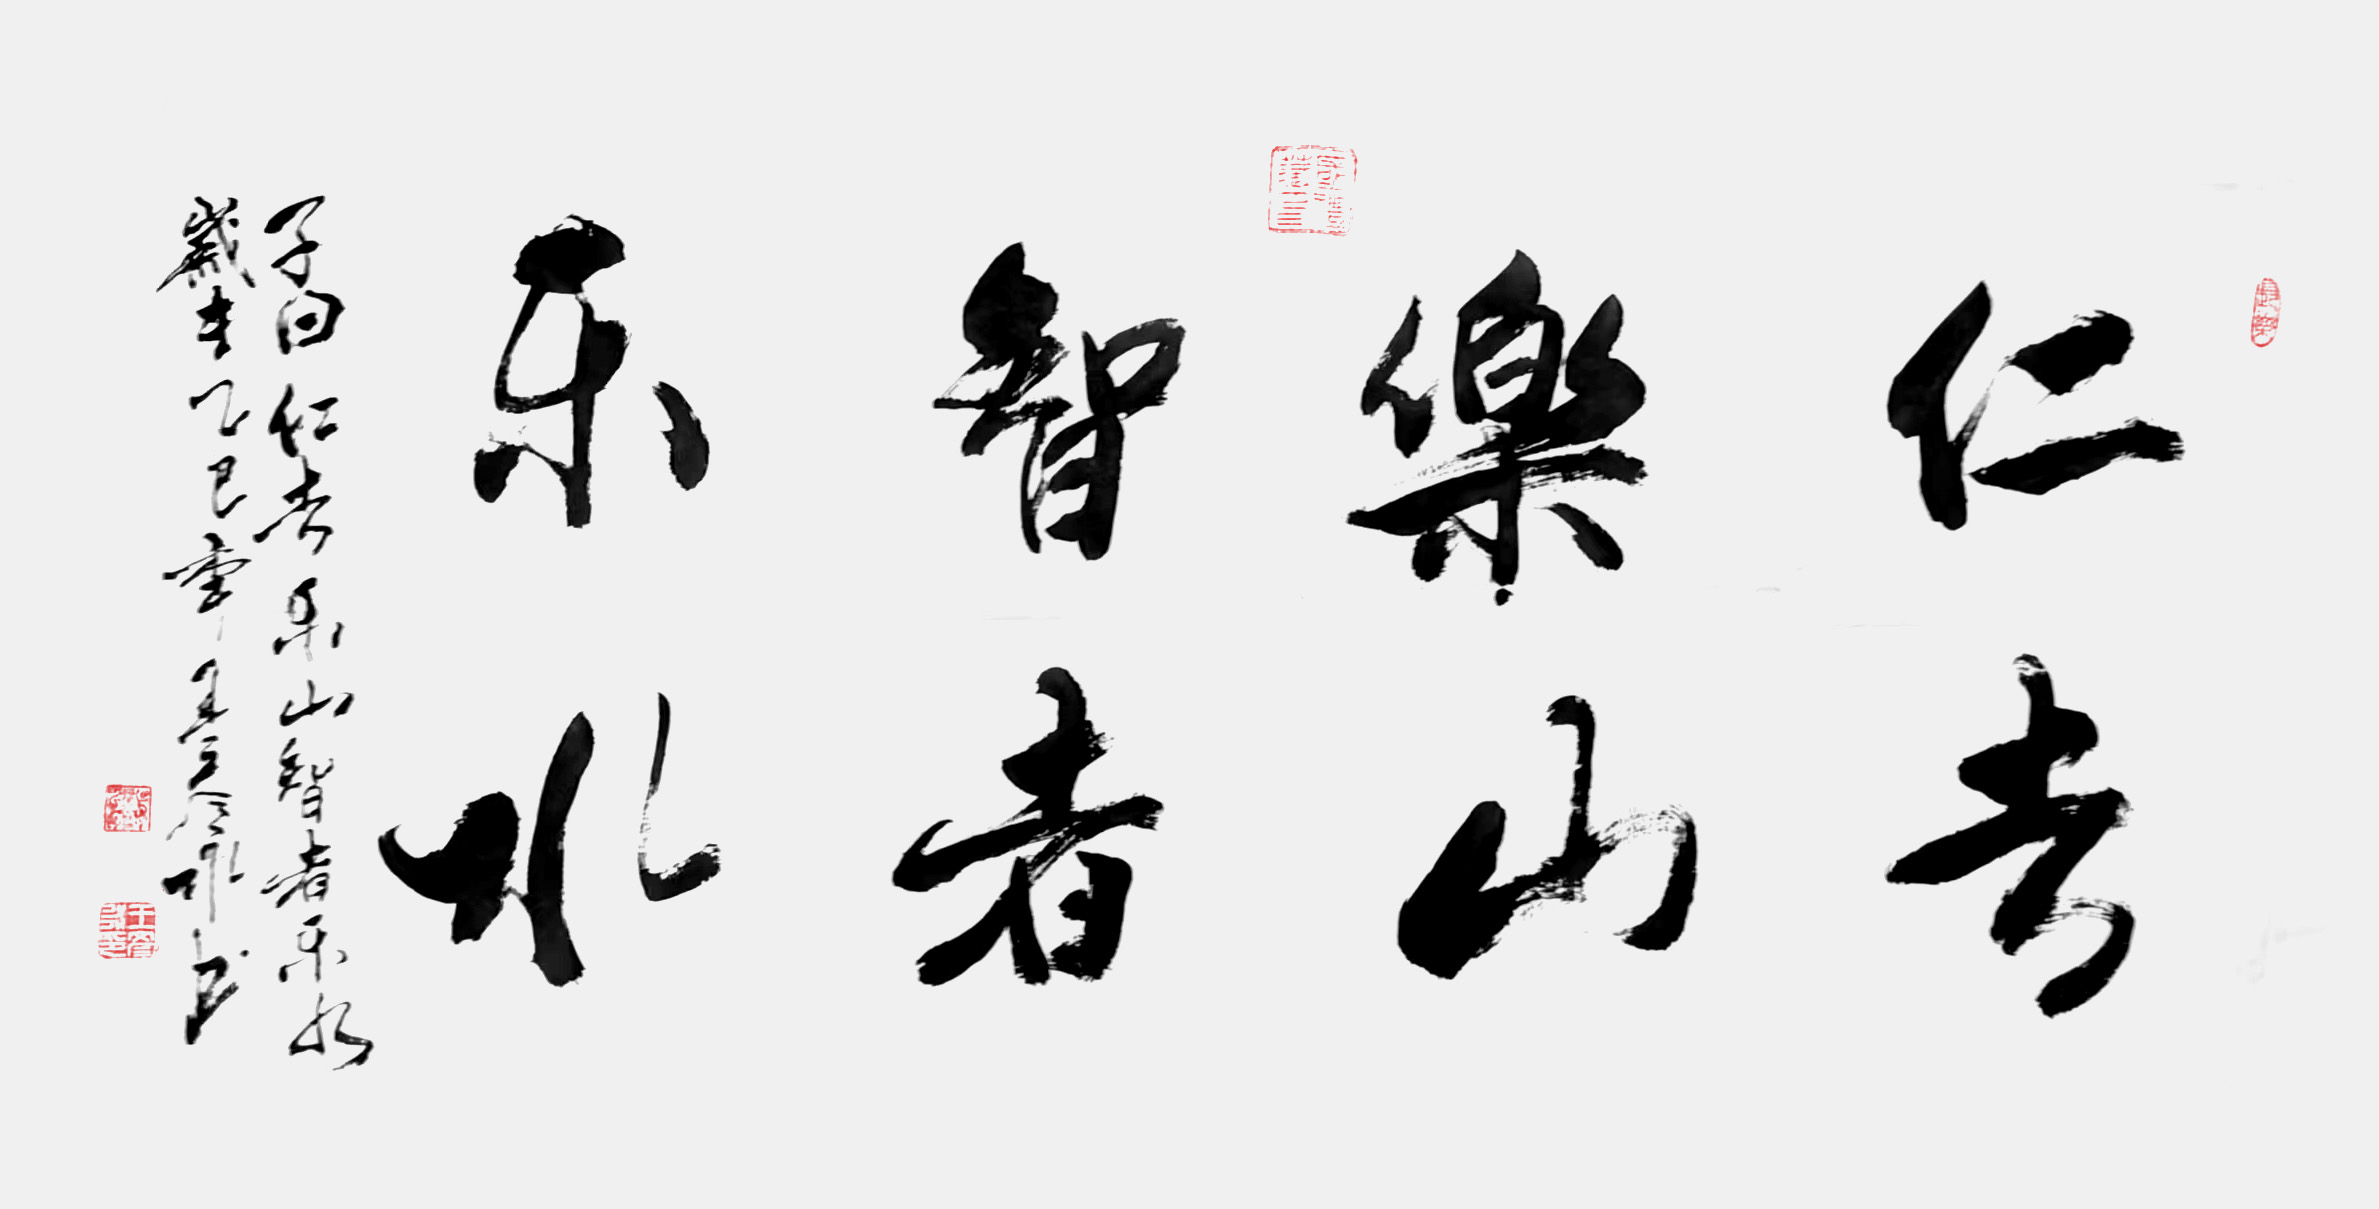 仁者
樂山
智者
乐水
子曰仁者乐山智者乐水
歲在乙巳年
书